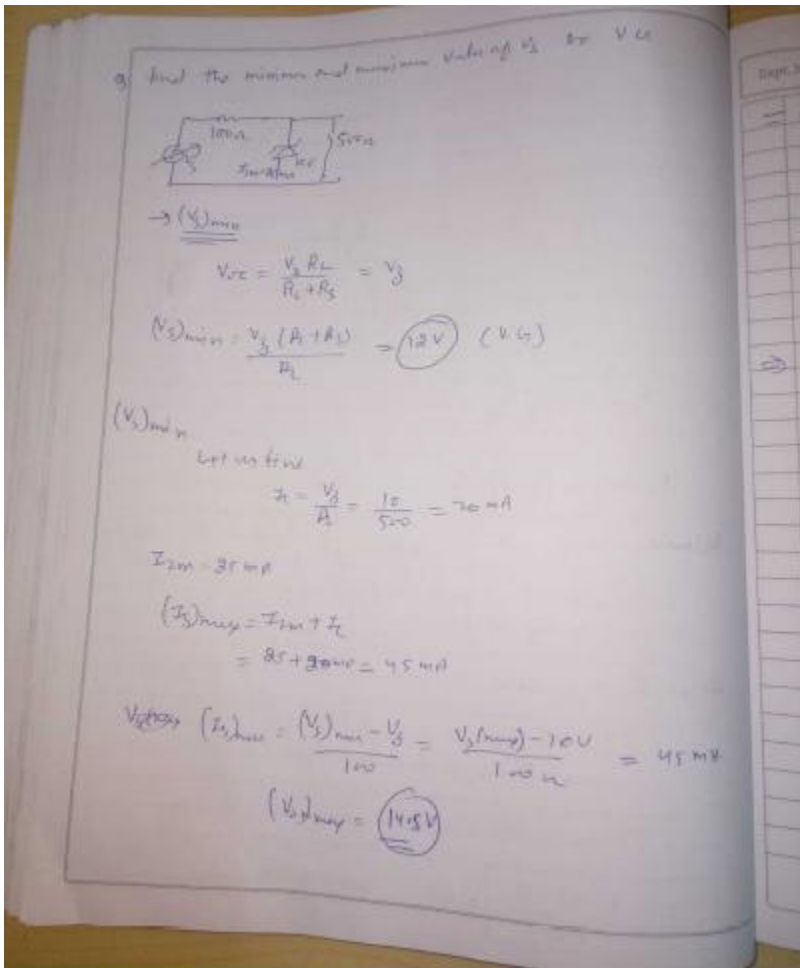 find the minimum and maximum value of Vs
100Ω
500Ω
→ (Vs)min
Voc = Vs RL / RL + Rs = Vz
(Vs)min = Vz (RL + Rs) / RL = 12V
(Vs)min
Let us find
IL = Vz / RL = 10 / 500 = 20 mA
Izm = 25 mA
(Is)max = Izm + IL
= 25 + 20 mA = 45 mA
(Is)max = (Vs)max - Vz / 100 = Vs(max) - 10V / 100Ω = 45 mA
(Vs)max = 14.5V
Dept.